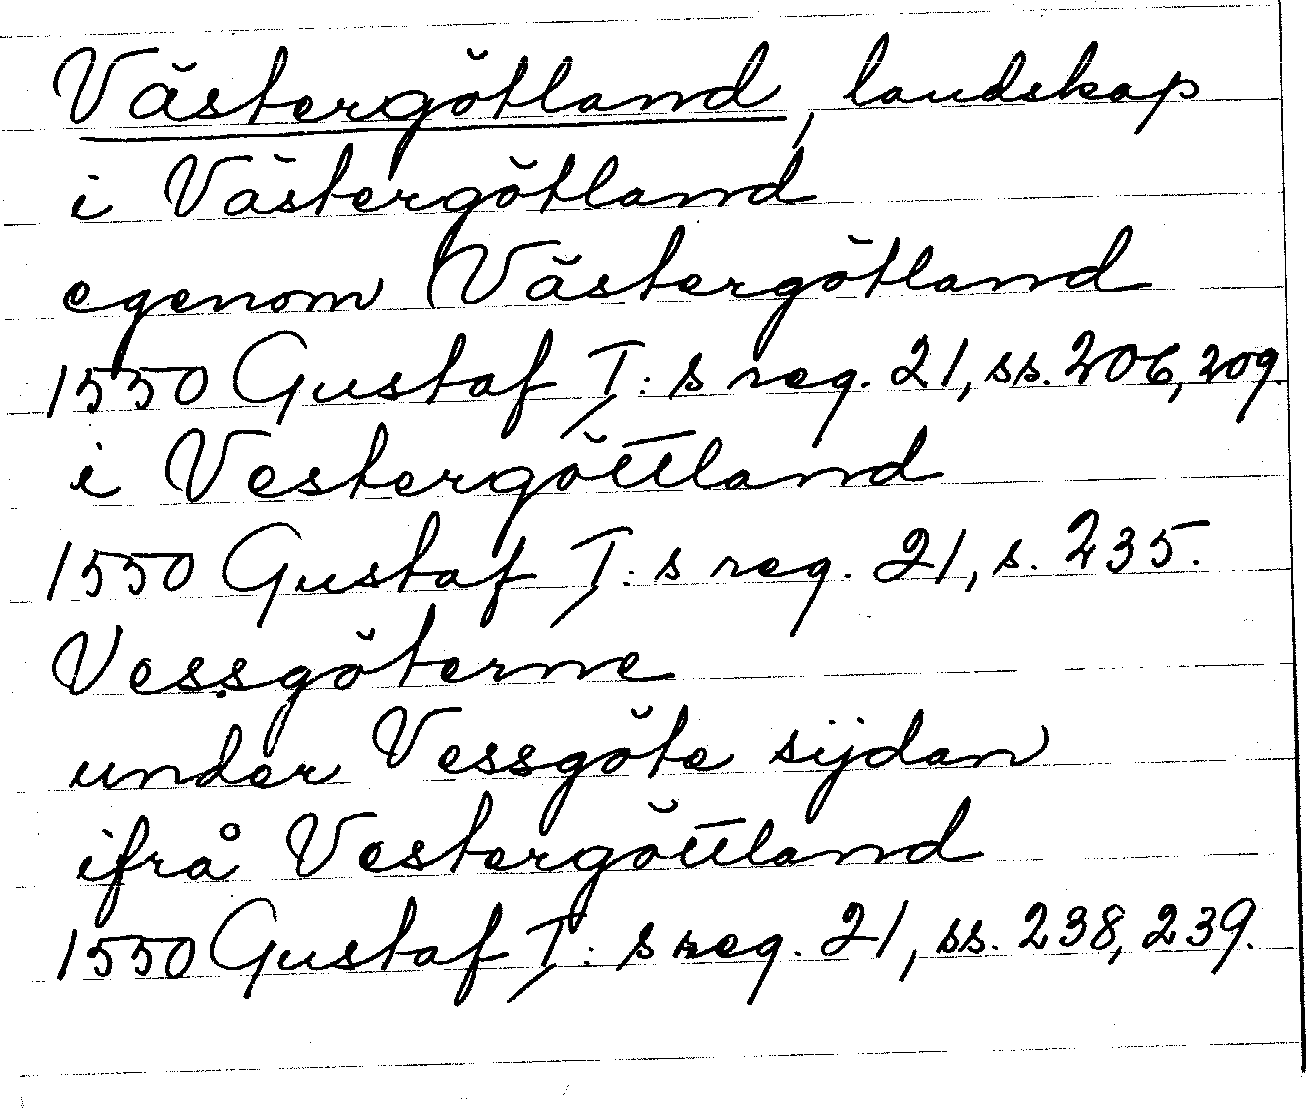 Västergötland, landskap
i Västergötland
egenom Västergötland
1550 Gustaf I:s reg. 21, ss. 206, 209.
i Vestergöttland
1550 Gustaf I:s reg. 21, s. 235.
Vessgöterne
under Vessgöte sijdan
ifrå Vestergöttland
1550 Gustaf I:s reg. 21, ss. 238, 239.